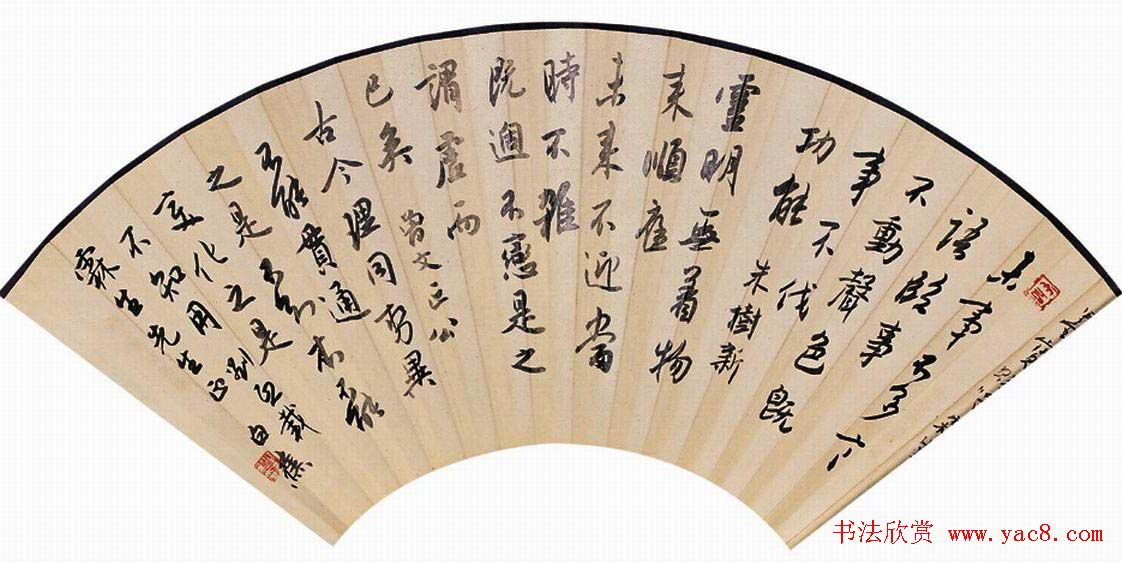 未事不多言
語臨事
不動聲色既
事不伐
功能 朱樹新
靈明無著物
來順應
未來不迎當
時不雜
既過不戀是之
謂虛而
已矣 曾文正公
古今理同勢異
不能貫通
之是不別不能
變化之是
不知用 劉
霖生先生正 白蕉
书法欣赏 www.yac8.com